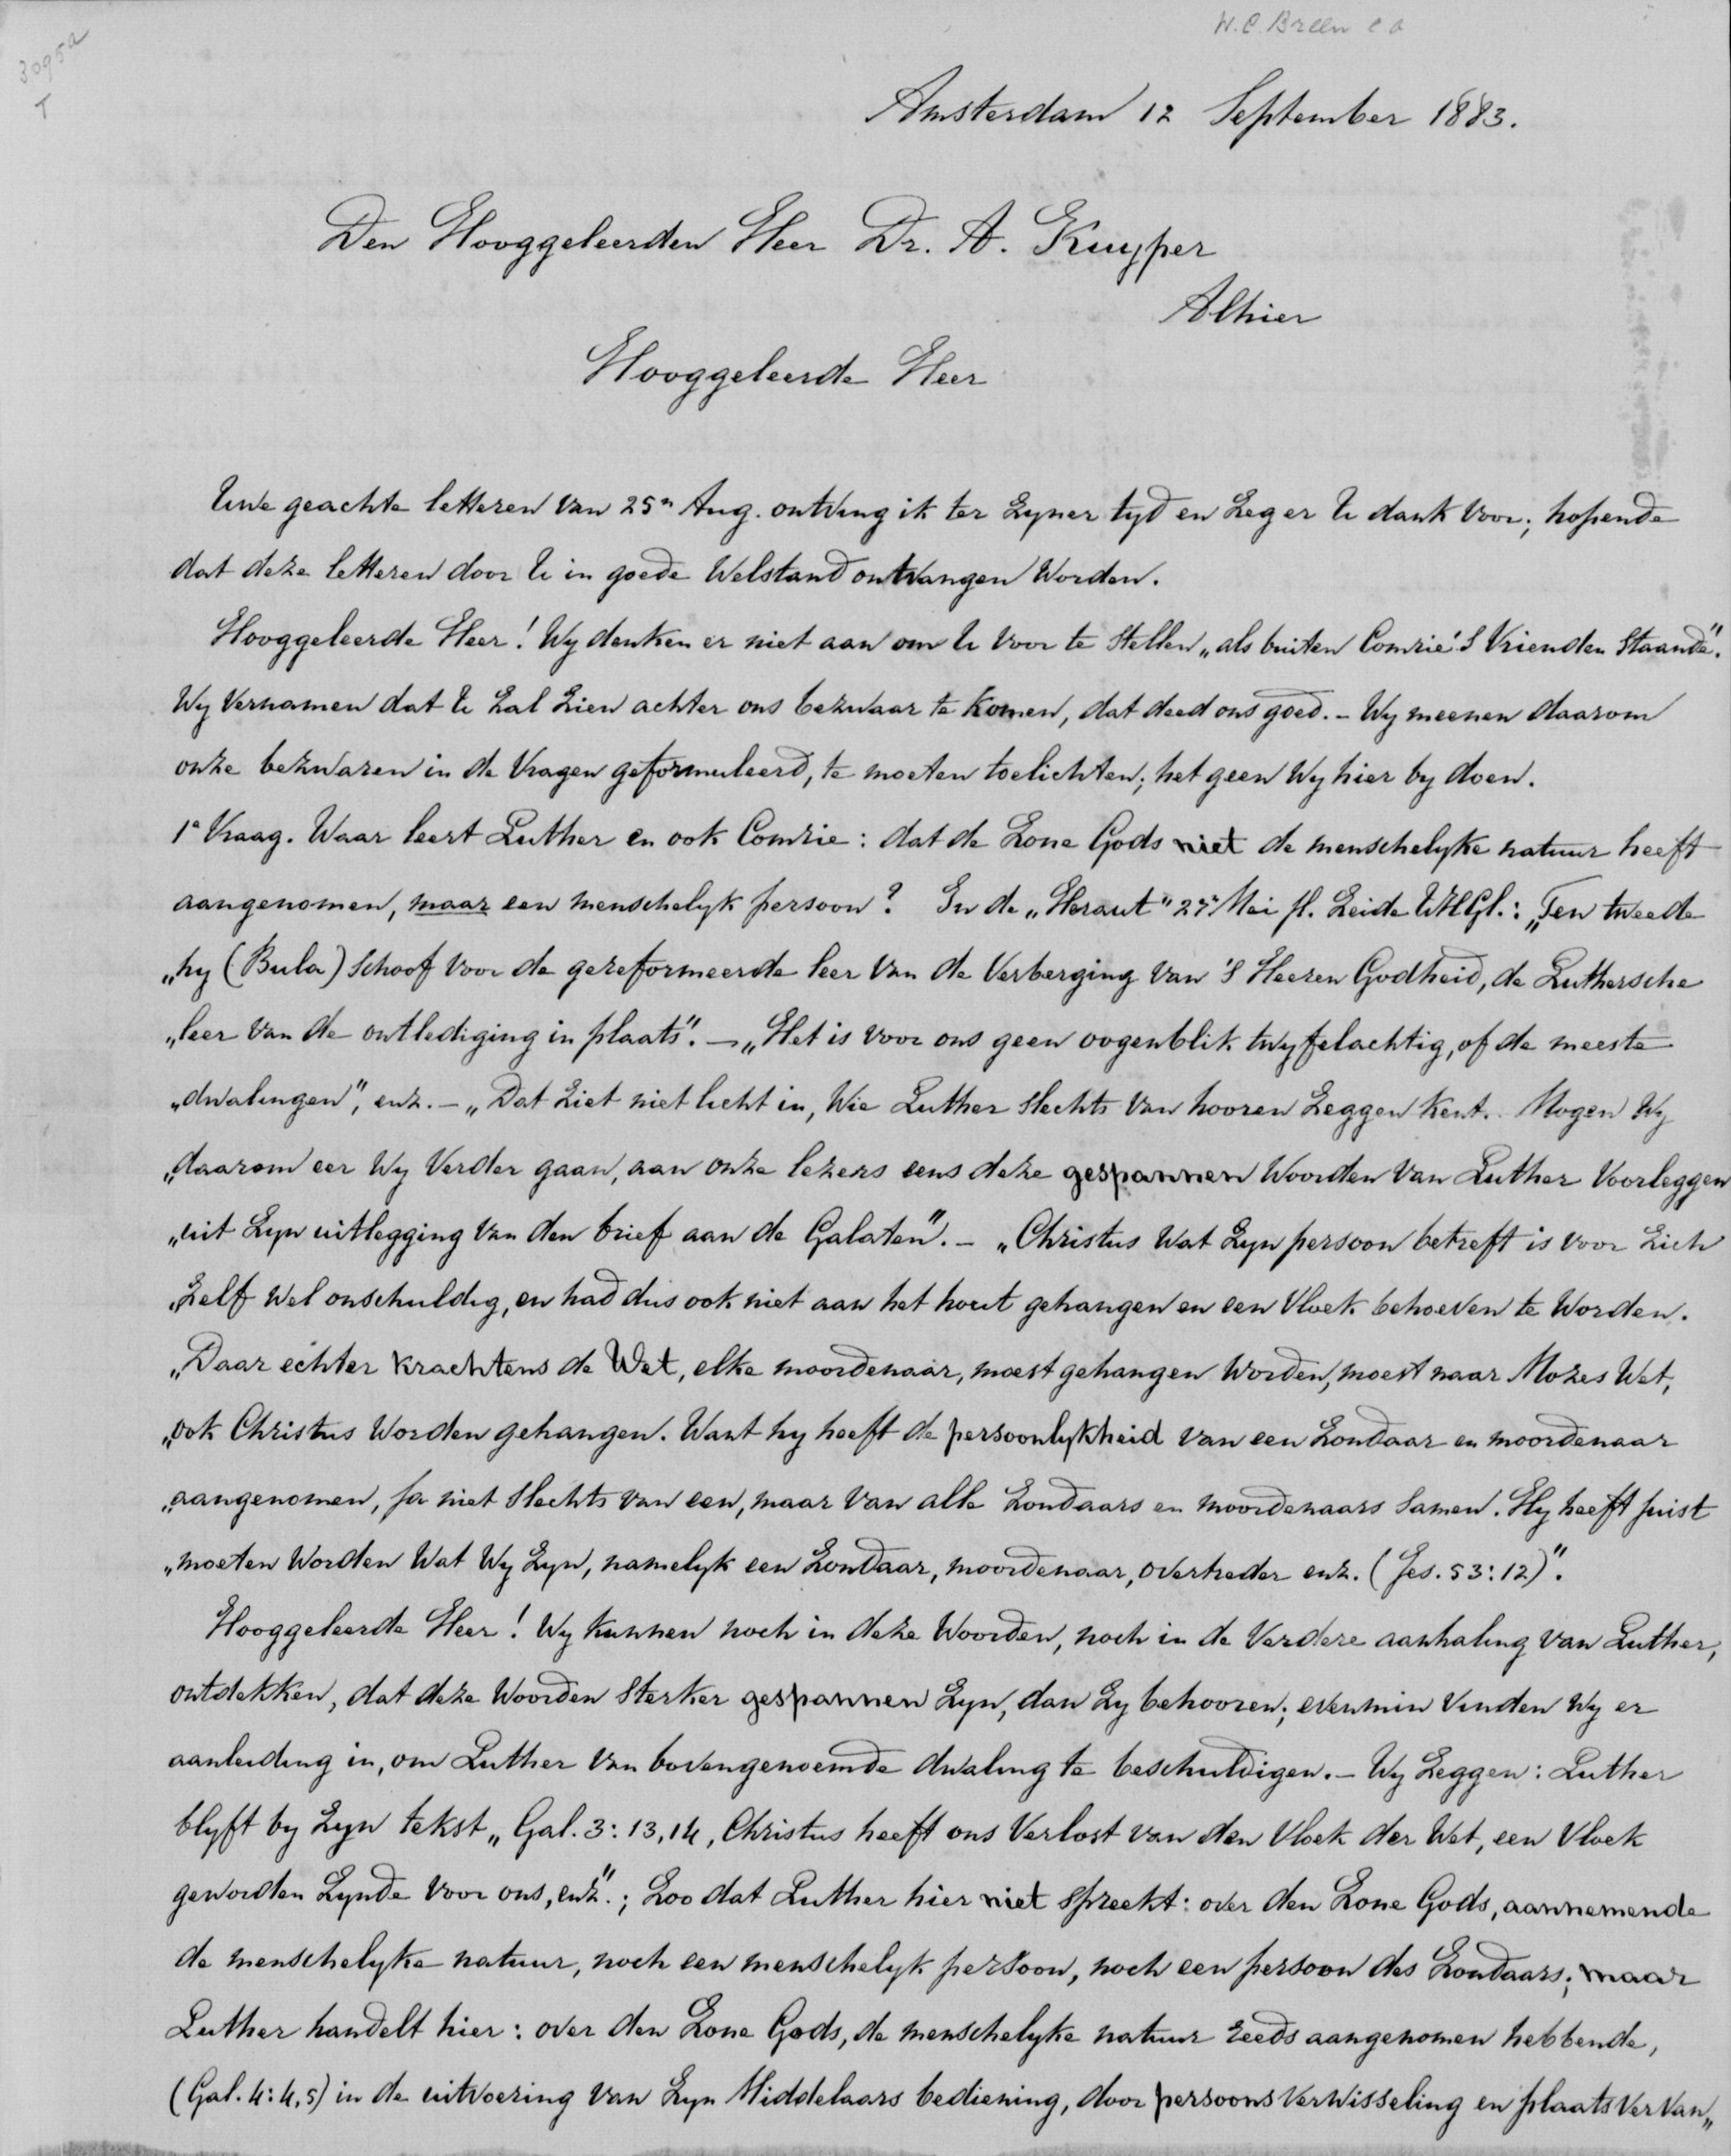 W.C. Breen c a
3095a
T
Amsterdam 12 September 1883.
Den Hooggeleerden Heer Dr. A. Kuyper
Alhier
Hooggeleerde Heer
Uwe geachte letteren van 25n Aug. ontving ik ter zyner tyd en zeg er U dank voor; hopende
dat deze letteren door U in goede welstand ontvangen worden.
Hooggeleerde Heer! Wy denken er niet aan om U voor te stellen „als buiten Comrie's vrienden staande".
Wy vernamen dat U zal zien achter ons bezwaar te komen, dat deed ons goed. – Wy meenen daarom
onze bezwaren in de vragen geformuleerd, te moeten toelichten; het geen wy hier by doen.
1e Vraag. Waar leert Luther en ook Comrie: dat de Zone Gods niet de menschelyke natuur heeft
aangenomen, maar een menschelyk persoon? In de „Heraut" 27 Mei jl. zeide UHGl.: „Ten tweede
„hy (Bula) schoof voor de gereformeerde leer van de verberging van 's Heeren Godheid, de Luthersche
„leer van de ontlediging in plaats". – „Het is voor ons geen oogenblik twyfelachtig, of de meeste
„dwalingen", enz. – „Dat ziet niet licht in, wie Luther slechts van hooren zeggen kent. Mogen wy
„daarom eer wy verder gaan, aan onze lezers eens deze gespannen woorden van Luther voorleggen
„uit zyn uitlegging van den brief aan de Galaten". – „Christus wat zyn persoon betreft is voor zich
„zelf wel onschuldig, en had dus ook niet aan het hout gehangen en een vloek behoeven te worden.
„Daar echter krachtens de Wet, elke moordenaar, moest gehangen worden, moest naar Mozes Wet,
„ook Christus worden gehangen. Want hy heeft de persoonlykheid van een zondaar en moordenaar
„aangenomen, ja niet slechts van een, maar van alle zondaars en moordenaars samen. Hy heeft juist
„moeten worden wat wy zyn, namelyk een zondaar, moordenaar, overtreder enz. (Jes. 53:12)".
Hooggeleerde Heer! Wy kunnen noch in deze woorden, noch in de verdere aanhaling van Luther,
ontdekken, dat deze woorden sterker gespannen zyn, dan zy behooren; evenmin vinden wy er
aanleiding in, om Luther van bovengenoemde dwaling te beschuldigen. – Wy zeggen: Luther
blyft by zyn tekst „Gal. 3:13,14, Christus heeft ons verlost van den vloek der Wet, een vloek
geworden zynde voor ons, enz."; zoo dat Luther hier niet spreekt: over den Zone Gods, aannemende
de menschelyke natuur, noch een menschelyk persoon, noch een persoon des zondaars; maar
Luther handelt hier: over den Zone Gods, de menschelyke natuur reeds aangenomen hebbende,
(Gal. 4:4,5) in de uitvoering van zyn Middelaars bediening, door persoonsverwisseling en plaatsvervan„